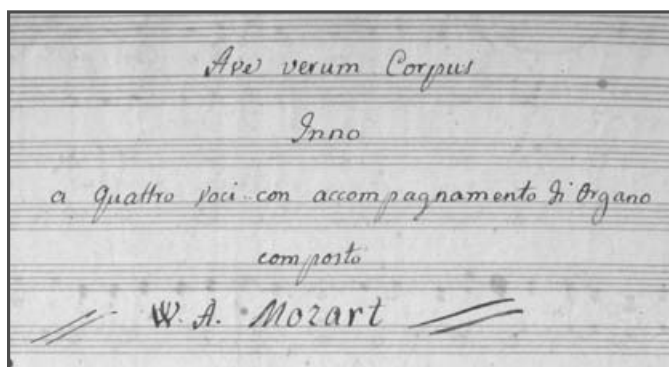 Ave verum Corpus
Inno
a quattro voci con accompagnamento di Organo
composto
W. A. Mozart